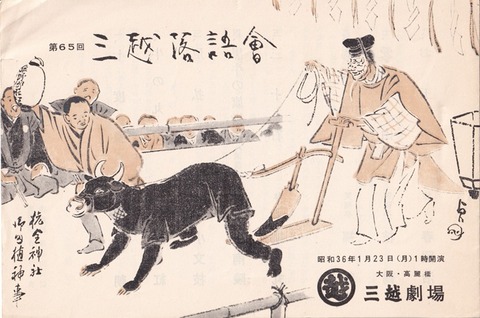 第65回
三越落語會
杭全神社
御田植神事
昭和36年1月23日(月)1時開演
大阪・高麗橋
越
三越劇場